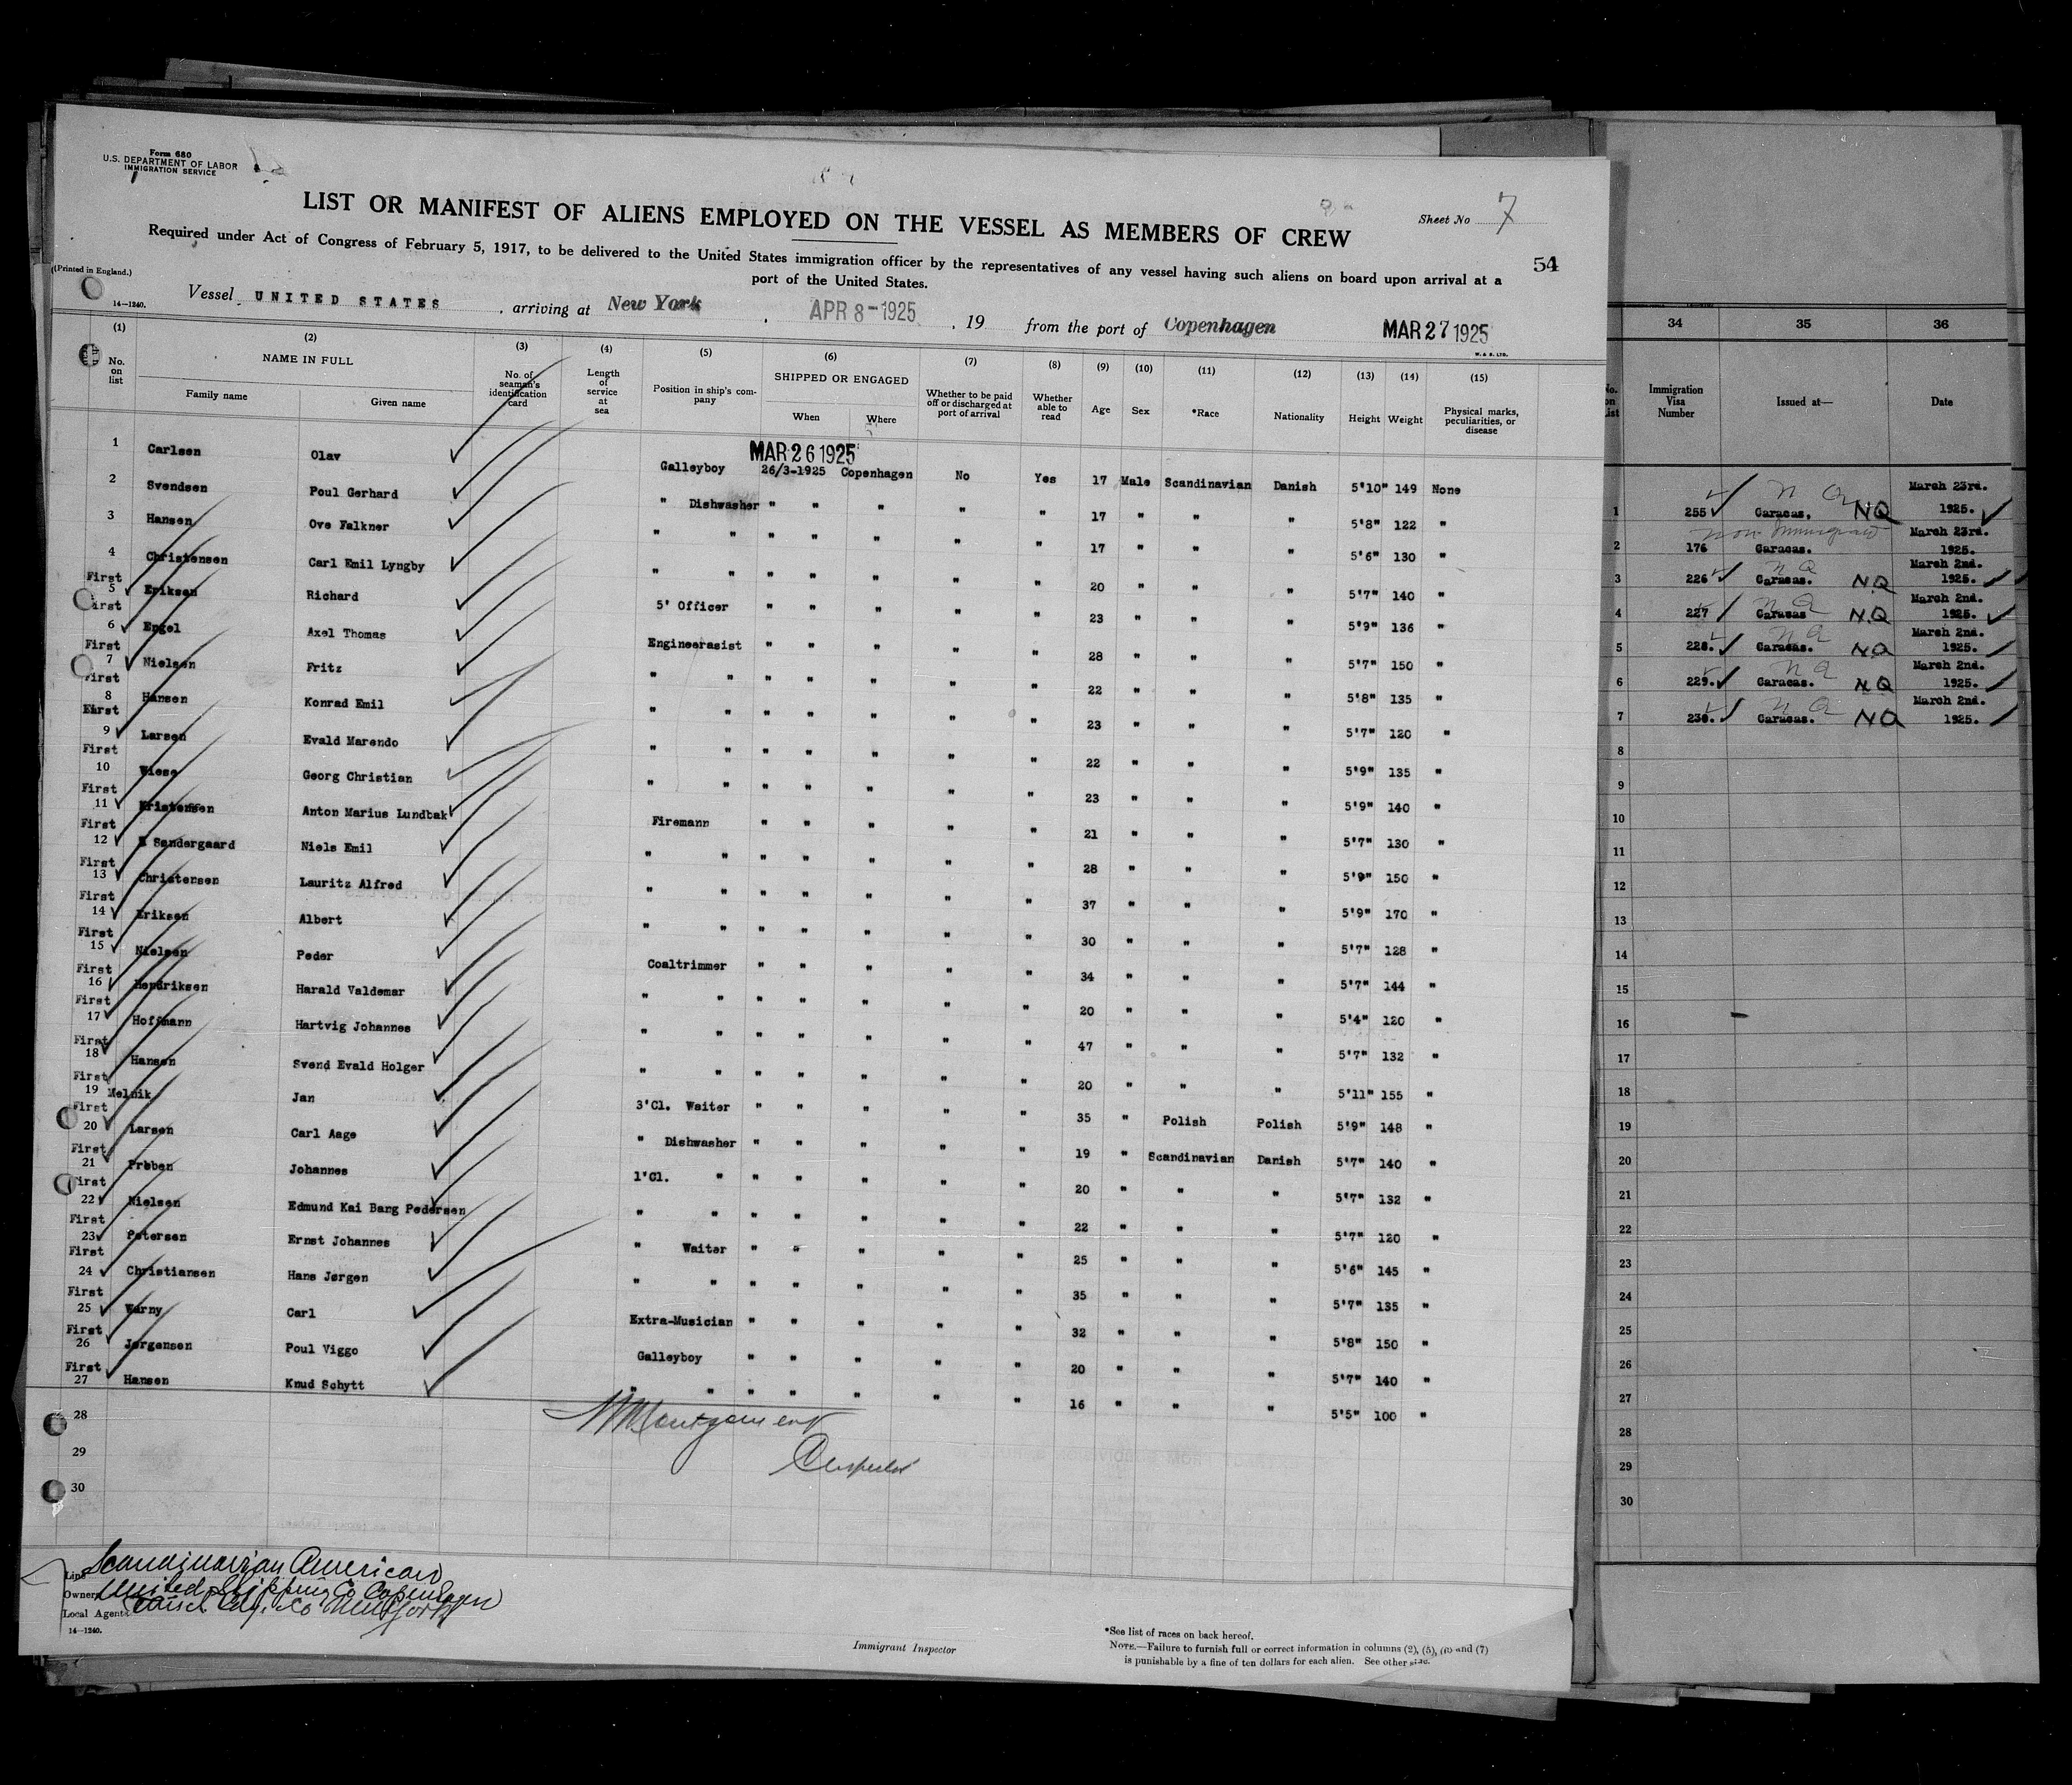 Form 680
U.S. DEPARTMENT OF LABOR
IMMIGRATION SERVICE
LIST OR MANIFEST OF ALIENS EMPLOYED ON THE VESSEL AS MEMBERS OF CREW
Sheet No 7
Required under Act of Congress of February 5, 1917, to be delivered to the United States immigration officer by the representatives of any vessel having such aliens on board upon arrival at a
port of the United States.
54
(Printed in England.)
14—1240.
Vessel UNITED STATES, arriving at New York, APR 8-1925, 19 from the port of Copenhagen MAR 27 1925
W. & S. LTD.
(1) (2) (3) (4) (5) (6) (7) (8) (9) (10) (11) (12) (13) (14) (15)
No. on list NAME IN FULL Family name Given name No. of seaman's identification card Length of service at sea Position in ship's company SHIPPED OR ENGAGED When Where Whether to be paid off or discharged at port of arrival Whether able to read Age Sex *Race Nationality Height Weight Physical marks, peculiarities, or disease
MAR 26 1925
1 Carlsen Olav Galleyboy 26/3-1925 Copenhagen No Yes 17 Male Scandinavian Danish 5'10" 149 None
2 Svendsen Poul Gerhard " Dishwasher " " " " " 17 " " " 5'8" 122 "
3 Hansen Ove Falkner " " " " " " " 17 " " " 5'6" 130 "
4 Christensen Carl Emil Lyngby " " " " " " " 20 " " " 5'7" 140 "
First 5 Eriksen Richard 5' Officer " " " " " 23 " " " 5'9" 136 "
First 6 Engel Axel Thomas Engineerasist " " " " " 28 " " " 5'7" 150 "
First 7 Nielsen Fritz " " " " " " " 22 " " " 5'8" 135 "
First 8 Hansen Konrad Emil " " " " " " " 23 " " " 5'7" 120 "
First 9 Larsen Evald Marendo " " " " " " " 22 " " " 5'9" 135 "
First 10 Wiese Georg Christian " " " " " " " 23 " " " 5'9" 140 "
First 11 Kristensen Anton Marius Lundbak Firemann " " " " " 21 " " " 5'7" 130 "
First 12 Søndergaard Niels Emil " " " " " " " 28 " " " 5'9" 150 "
First 13 Christensen Lauritz Alfred " " " " " " " 37 " " " 5'9" 170 "
First 14 Eriksen Albert " " " " " " " 30 " " " 5'7" 128 "
First 15 Nielsen Peder Coaltrimmer " " " " " 34 " " " 5'7" 144 "
First 16 Hendriksen Harald Valdemar " " " " " " " 20 " " " 5'4" 120 "
First 17 Hoffmann Hartvig Johannes " " " " " " " 47 " " " 5'7" 132 "
First 18 Hansen Svend Evald Holger " " " " " " " 20 " " " 5'11" 155 "
First 19 Melnik Jan 3'Cl. Waiter " " " " " 35 " Polish Polish 5'9" 148 "
First 20 Larsen Carl Aage " Dishwasher " " " " " 19 " Scandinavian Danish 5'7" 140 "
First 21 Preben Johannes 1'Cl. " " " " " " 20 " " " 5'7" 132 "
First 22 Nielsen Edmund Kai Bang Pedersen " " " " " " " 22 " " " 5'7" 120 "
First 23 Petersen Ernst Johannes " Waiter " " " " " 25 " " " 5'6" 145 "
First 24 Christiansen Hans Jørgen " " " " " " " 35 " " " 5'7" 135 "
First 25 Warny Carl Extra-Musician " " " " " 32 " " " 5'8" 150 "
First 26 Jørgensen Poul Viggo Galleyboy " " " " " 20 " " " 5'7" 140 "
First 27 Hansen Knud Schytt " " " " " " " 16 " " " 5'5" 100 "
28
29
30
Montgomery
Inspector
Line Scandinavian American
Owners United Shipping Co Copenhagen
Local Agents
14—1240.
Immigrant Inspector
*See list of races on back hereof.
NOTE.—Failure to furnish full or correct information in columns (2), (5), (6) and (7)
is punishable by a fine of ten dollars for each alien. See other side.
34 35 36
No. on List Immigration Visa Number Issued at— Date
1 255 Caracas. NQ March 23rd. 1925.
Non Immigrant
2 176 Caracas. March 23rd. 1925.
3 226 Caracas. N.Q March 2nd. 1925.
4 227 Caracas N.Q March 2nd. 1925.
5 228. Caracas. NQ March 2nd. 1925.
6 229. Caracas. NQ March 2nd. 1925.
7 230. Caracas. NQ March 2nd. 1925.
8
9
10
11
12
13
14
15
16
17
18
19
20
21
22
23
24
25
26
27
28
29
30